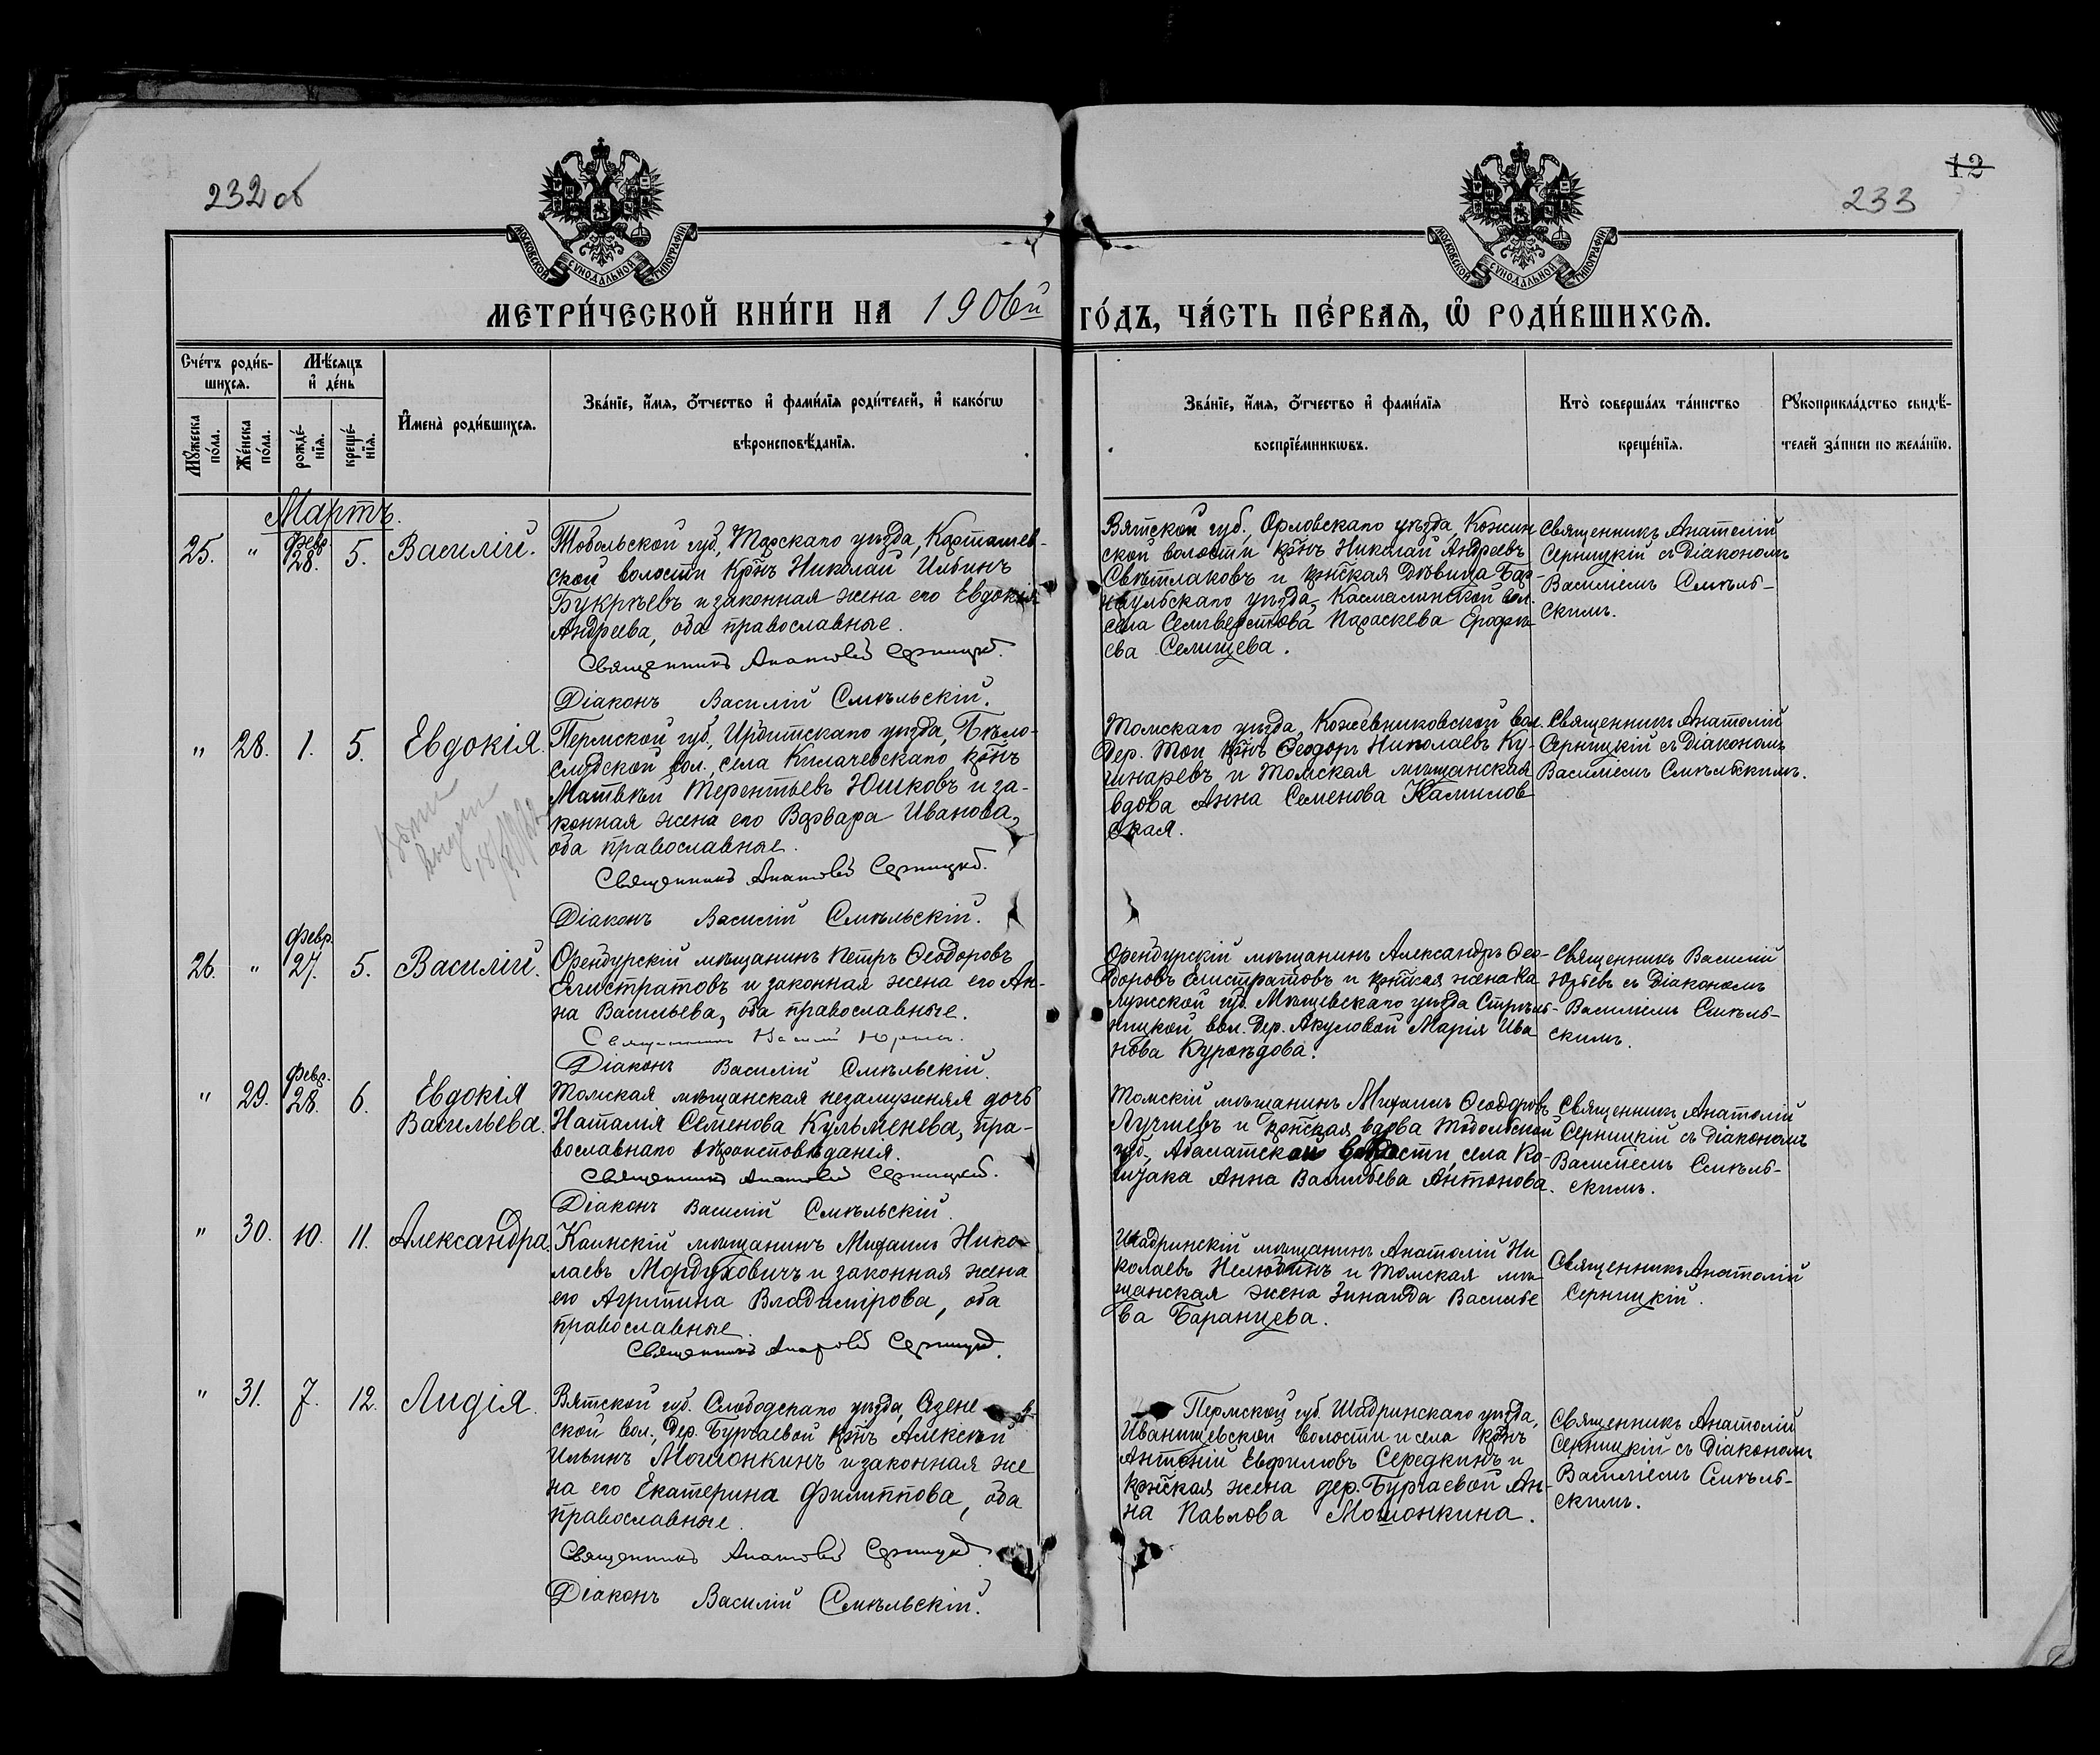 232 об
12
233
МОСКОВСКОЙ СУНОДАЛЬНОЙ ТИПОГРАФІИ
МОСКОВСКОЙ СУНОДАЛЬНОЙ ТИПОГРАФІИ
МЕТРИ́ЧЕСКОЙ КНИ́ГИ НА 1906й ГО́ДЪ, ЧА́СТЬ ПЕ́РВАЯ, Ѡ РОДИ́ВШИХСЯ.
Сче́тъ роди́в-
шихся.
Мѣ́сяцъ
и҆ де́нь
Мꙋ́жеска по́ла.
Же́нска по́ла.
рожде́-
нїя.
креще́-
нїя.
И҆мена̀ роди́вшихся.
Зва́нїе, и҆́мя, ѻ҆́тчество и҆ фами́лїя роди́телей, и҆ како́гѡ
вѣроисповѣ́данїя.
Зва́нїе, и҆́мя, ѻ҆́тчество и҆ фами́лїя
воспрїе́мникѡвъ.
Кто̀ соверша́лъ та́инство
креще́нїя.
Рꙋкоприкла́дство свидѣ́-
телей за́писи по жела́нїю.
Мартъ.
25. " Февр. 28. 5. Василій.
Тобольской губ., Тарскаго уѣзда, Карташев-
ской волости крнъ Николай Ильинъ
Букрѣевъ и законная жена его Евдокія
Андреева, оба православные.
Священникъ Анатолій Серницкій.
Діаконъ Василій Смѣльскій.
Вятской губ., Орловскаго уѣзда, Кожин
ской волости крнъ Николай Андреевъ
Свѣтлаковъ и крнская дѣвица Бар-
наульскаго уѣзда, Касмалинской вол.
села Селиверстова Параскева Ерофѣ-
ева Селищева.
Священникъ Анатолій
Серницкій съ Діакономъ
Василіемъ Смѣль-
скимъ.
" 28. 1. 5. Евдокія.
Пермской губ., Ирбитскаго уѣзда, Бѣло-
слудской вол., села Килачевскаго крнъ
Матвѣй Терентьевъ Юшковъ и за-
конная жена его Варвара Иванова,
оба православные.
Священникъ Анатолій Серницкій.
Діаконъ Василій Смѣльскій.
Томскаго уѣзда, Кожевниковской вол.
дер. Тои крнъ Ѳеодоръ Николаевъ Ку-
шнаревъ и томская мѣщанская
вдова Анна Семенова Камилов
ская.
Священникъ Анатолій
Серницкій съ Діакономъ
Василіемъ Смѣльскимъ.
26. " Февр. 27. 5. Василій.
Оренбурскій мѣщанинъ Петръ Ѳеодоровъ
Елистратовъ и законная жена его Ан-
на Васильева, оба православные.
Священникъ Василій Юрьевъ.
Діаконъ Василій Смѣльскій.
Оренбурскій мѣщанинъ Александръ Ѳео-
доровъ Елистратовъ и крнская жена Ка
лужской губ. Мещевскаго уѣзда Стрѣль-
ницкой вол. дер. Акуловой Марія Ива
нова Куроѣдова.
Священникъ Василій
Юрьевъ съ Діакономъ
Василіемъ Смѣль-
скимъ.
" 29. Февр. 28. 6. Евдокія
Васильева.
Томская мѣщанская незамужняя дочь
Наталія Семенова Кульменева, пра-
вославнаго вѣроисповѣданія.
Священникъ Анатолій Серницкій.
Діаконъ Василій Смѣльскій.
Томскій мѣщанинъ Михаилъ Ѳеодоровъ
Лучшевъ и крнская вдова Тобольской
губ. Абалатской волости, села Ко-
Анна Васильева Антонова.
Священникъ Анатолій
Серницкій съ Діакономъ
Василіемъ Смѣль-
скимъ.
" 30. 10. 11. Александра.
Каинскій мѣщанинъ Михаилъ Нико-
лаевъ Мордуховичъ и законная жена
его Агрипина Владимірова, оба
православные.
Священникъ Анатолій Серницкій.
Шадринскій мѣщанинъ Анатолій Ни
колаевъ Нелюбинъ и томская мѣ-
щанская жена Зинаида Василье
ва Баранцева.
Священникъ Анатолій
Серницкій.
" 31. 7. 12. Лидія.
Вятской губ. Слободскаго уѣзда, Сезене
ской вол., дер. Бурчаевой крнъ Алексѣй
Ильинъ Мошонкинъ и законная же
на его Екатерина Филиппова, оба
православные.
Священникъ Анатолій Серницкій.
Діаконъ Василій Смѣльскій.
Пермской губ. Шадринскаго уѣзда,
Иванищевской волости и села крнъ
Антоній Евфимовъ Середкинъ и
крнская жена дер. Бурчаевой Ан-
на Павлова Мошонкина.
Священникъ Анатолій
Серницкій съ Діакономъ
Василіемъ Смѣль-
скимъ.